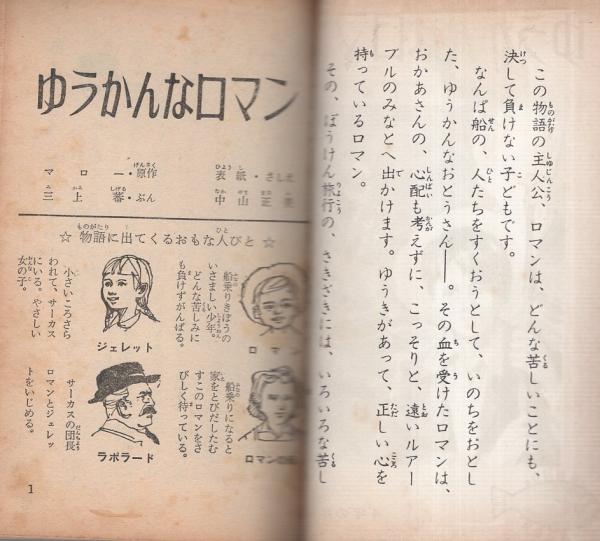 この物語の主人公、ロマンは、どんな苦しいことにも、
決して負けない子どもです。
なんぱ船の、人たちをすくおうとして、いのちをおとし
た、ゆうかんなおとうさん――。その血を受けたロマンは、
おかあさんの、心配も考えずに、こっそりと、遠いルアー
ブルのみなとへ出かけます。ゆうきがあって、正しい心を
持っているロマン。
その、ぼうけん旅行の、さきざきには、いろいろな苦し
ゆうかんなロマン
マロー・原作
三上蕃・ぶん
表紙・さしえ
中山正美
☆物語に出てくるおもな人びと☆
ロマン
船乗りきぼうの
いさましい少年。
どんな苦しみに
も負けずがんばる。
ジェレット
小さいころさら
われて、サーカス
にいる。やさしい
女の子。
ロマンの
船乗りになると
家をとびだしたむ
すこのロマンをさ
びしく待っている。
ラポラード
サーカスの団長
ロマンとジェレッ
トをいじめる。
1